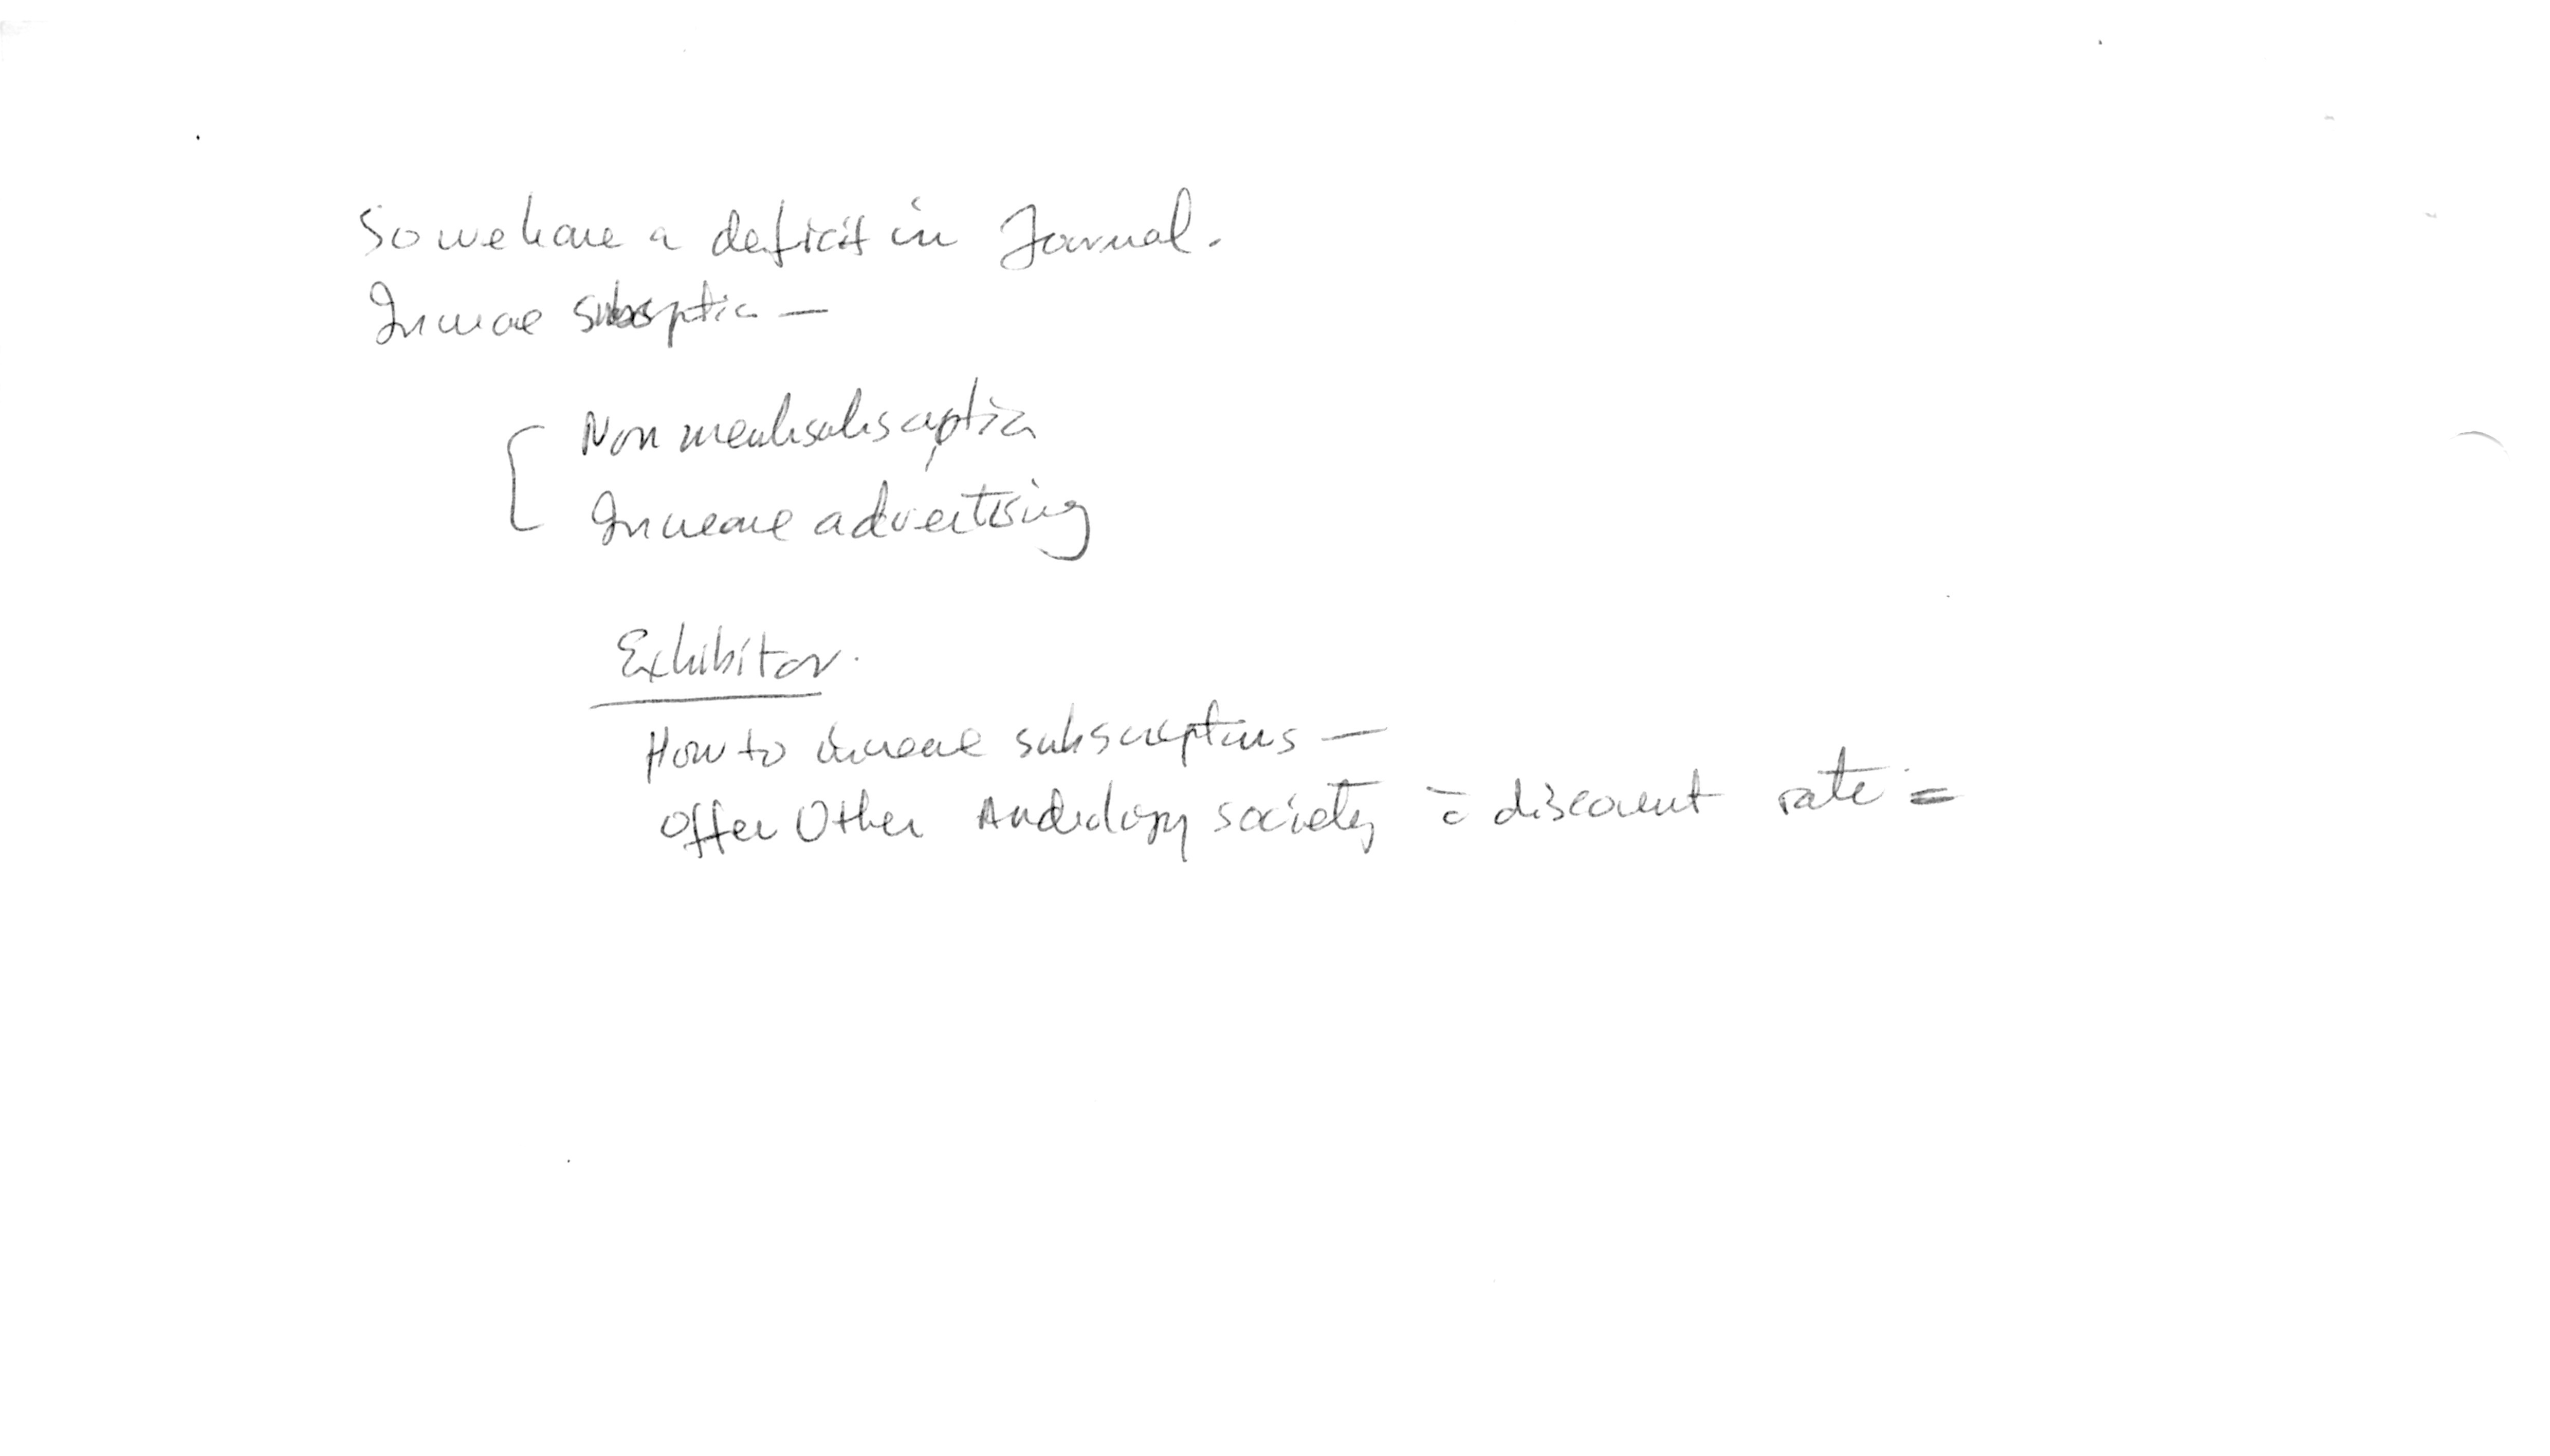 So we have a deficit in Journal.
Increase subscription —
Non member subscription
Increase advertising
Exhibitor.
How to increase subscriptions —
Offer Other Audiology society c̄ discount rate =